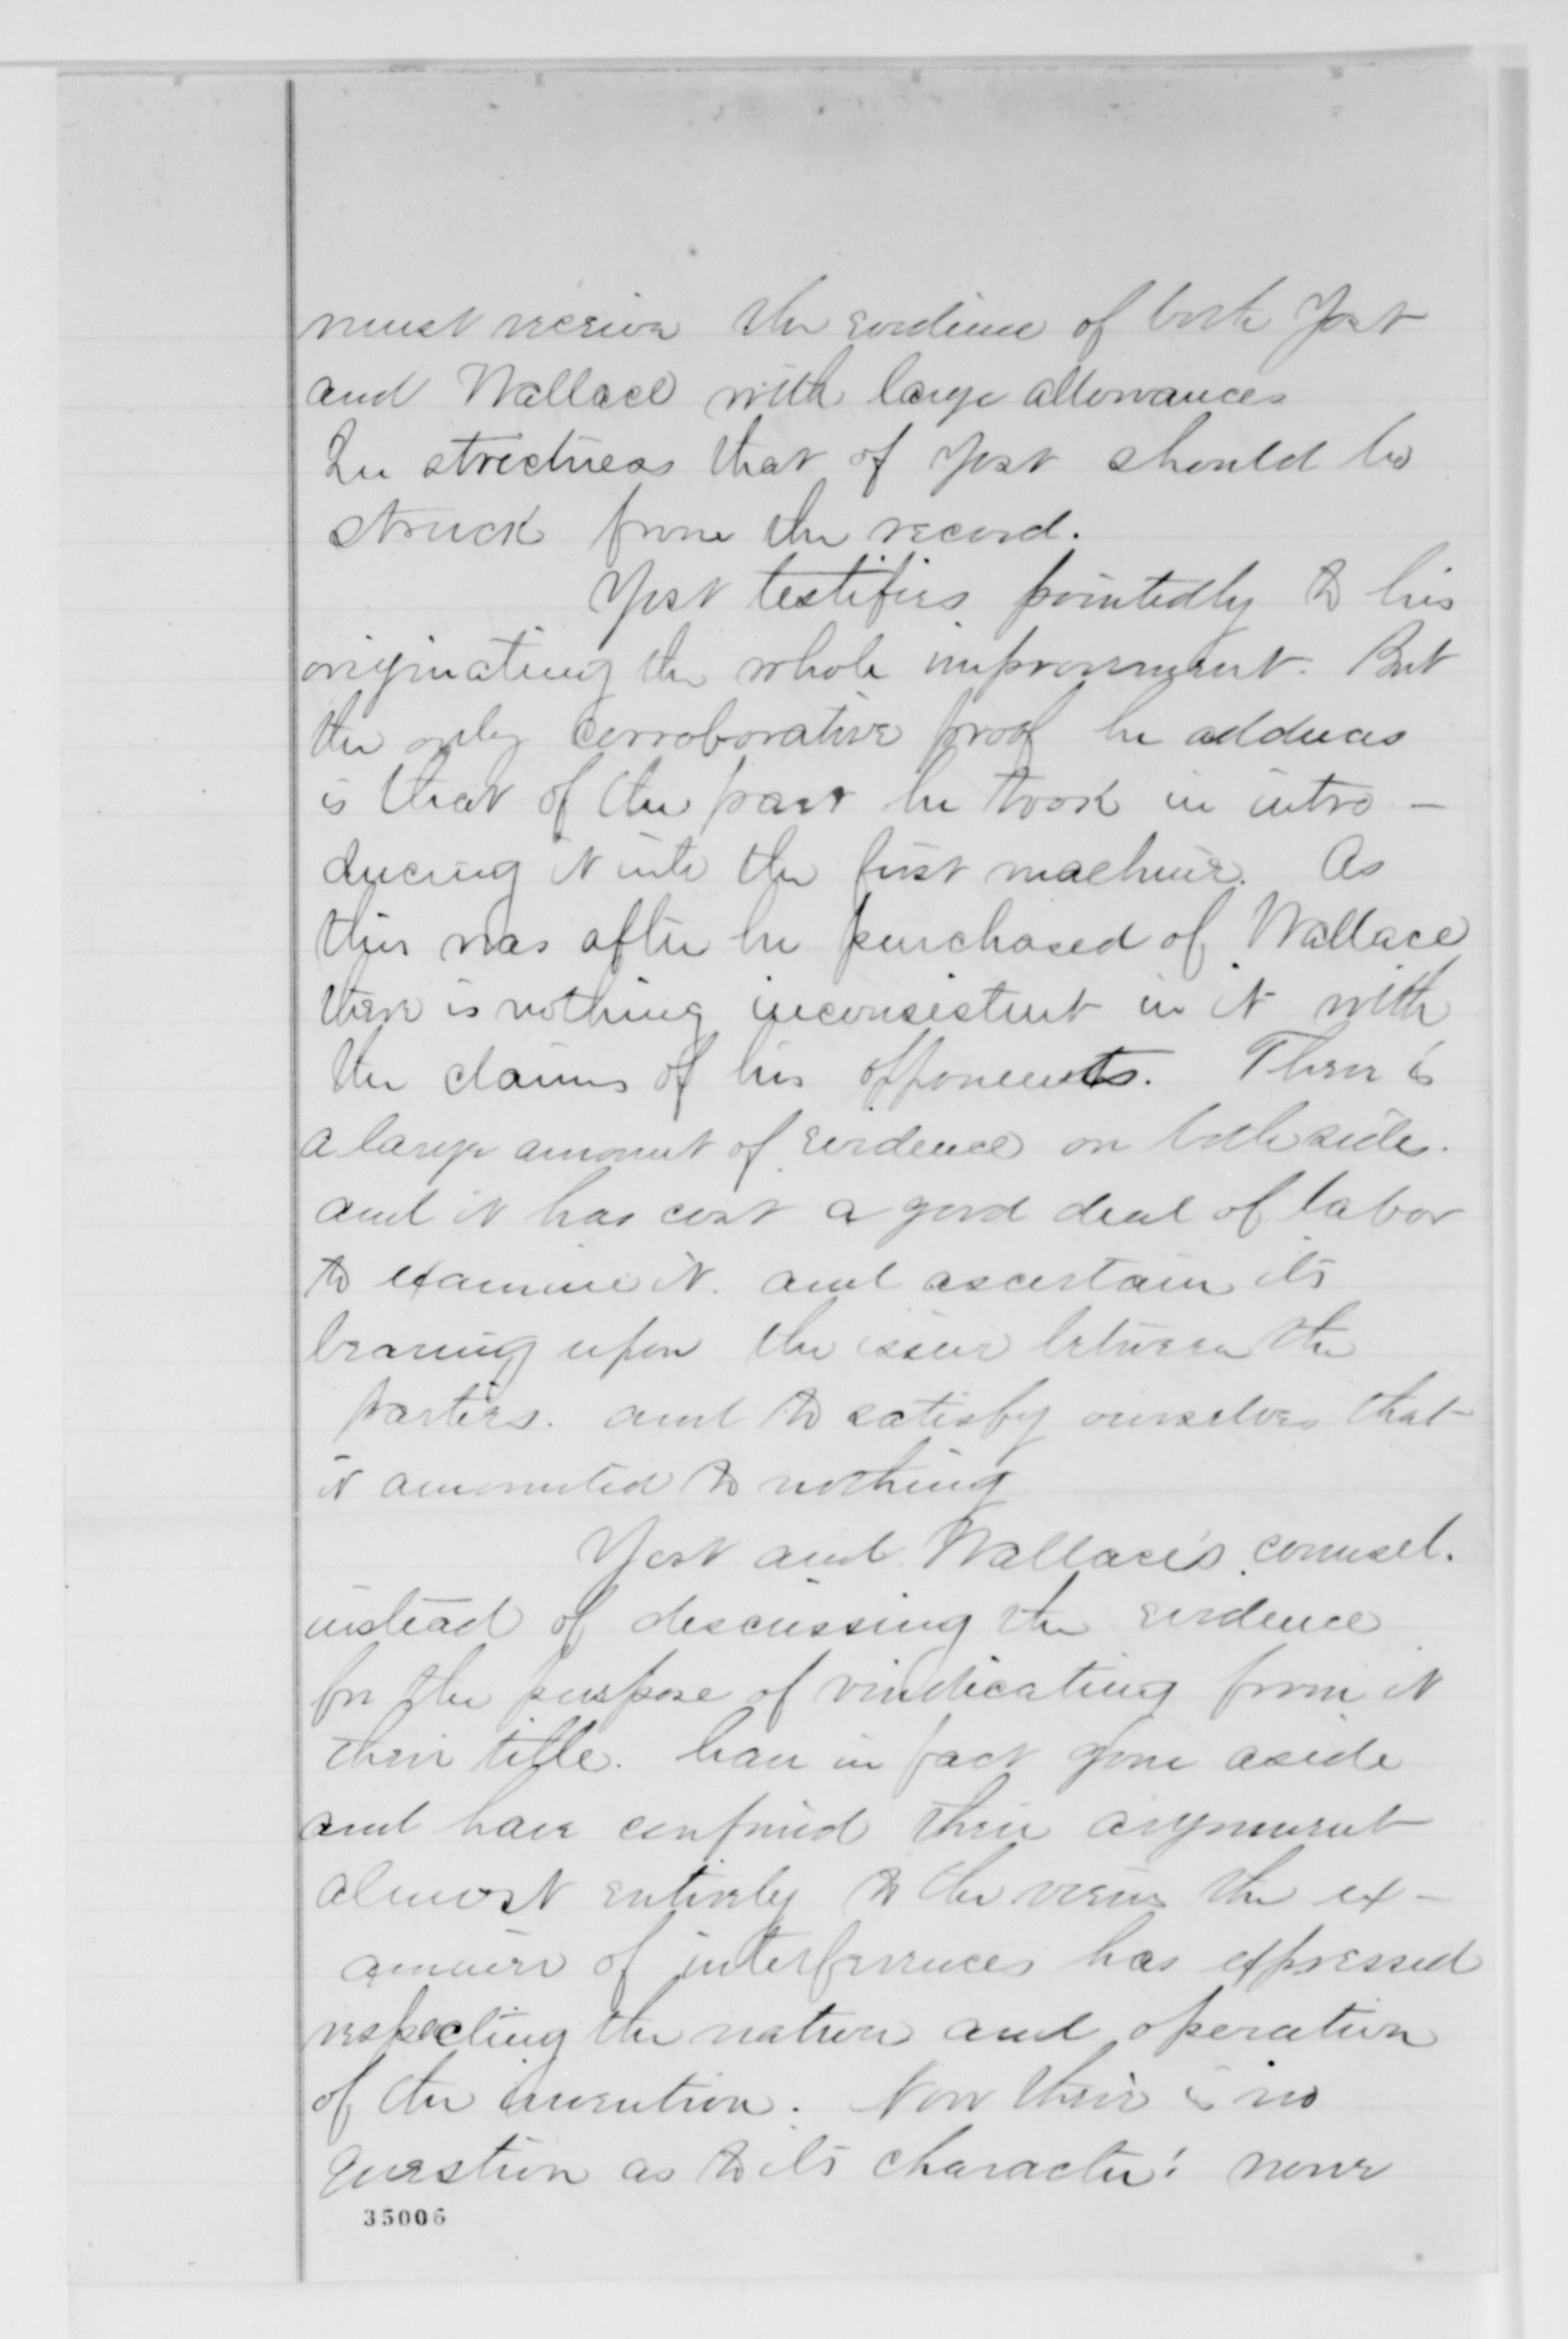 must receive the evidence of both Yost
and Wallace with large allowances
In strictness that of Yost should be
struck from the record.
Yost testifies pointedly to his
originating the whole improvement. But
the only corroborative proof he adduces
is that of the part he took in intro-
ducing it into the first machine. As
this was after he purchased of Wallace
there is nothing inconsistent in it with
the claims of his opponents. There is
a large amount of evidence on both sides.
and it has cost a good deal of labor
to examine it. and ascertain its
bearing upon the issue between the
parties. and to satisfy ourselves that
it amounted to nothing
Yost and Wallace's counsel.
instead of discussing the evidence
for the purpose of vindicating from it
their title. have in fact gone aside
and have confined their argument
almost entirely to the views the ex-
aminer of interferences has expressed
respecting the nature and operation
of the invention. Now there is no
question as to its character: none
35006